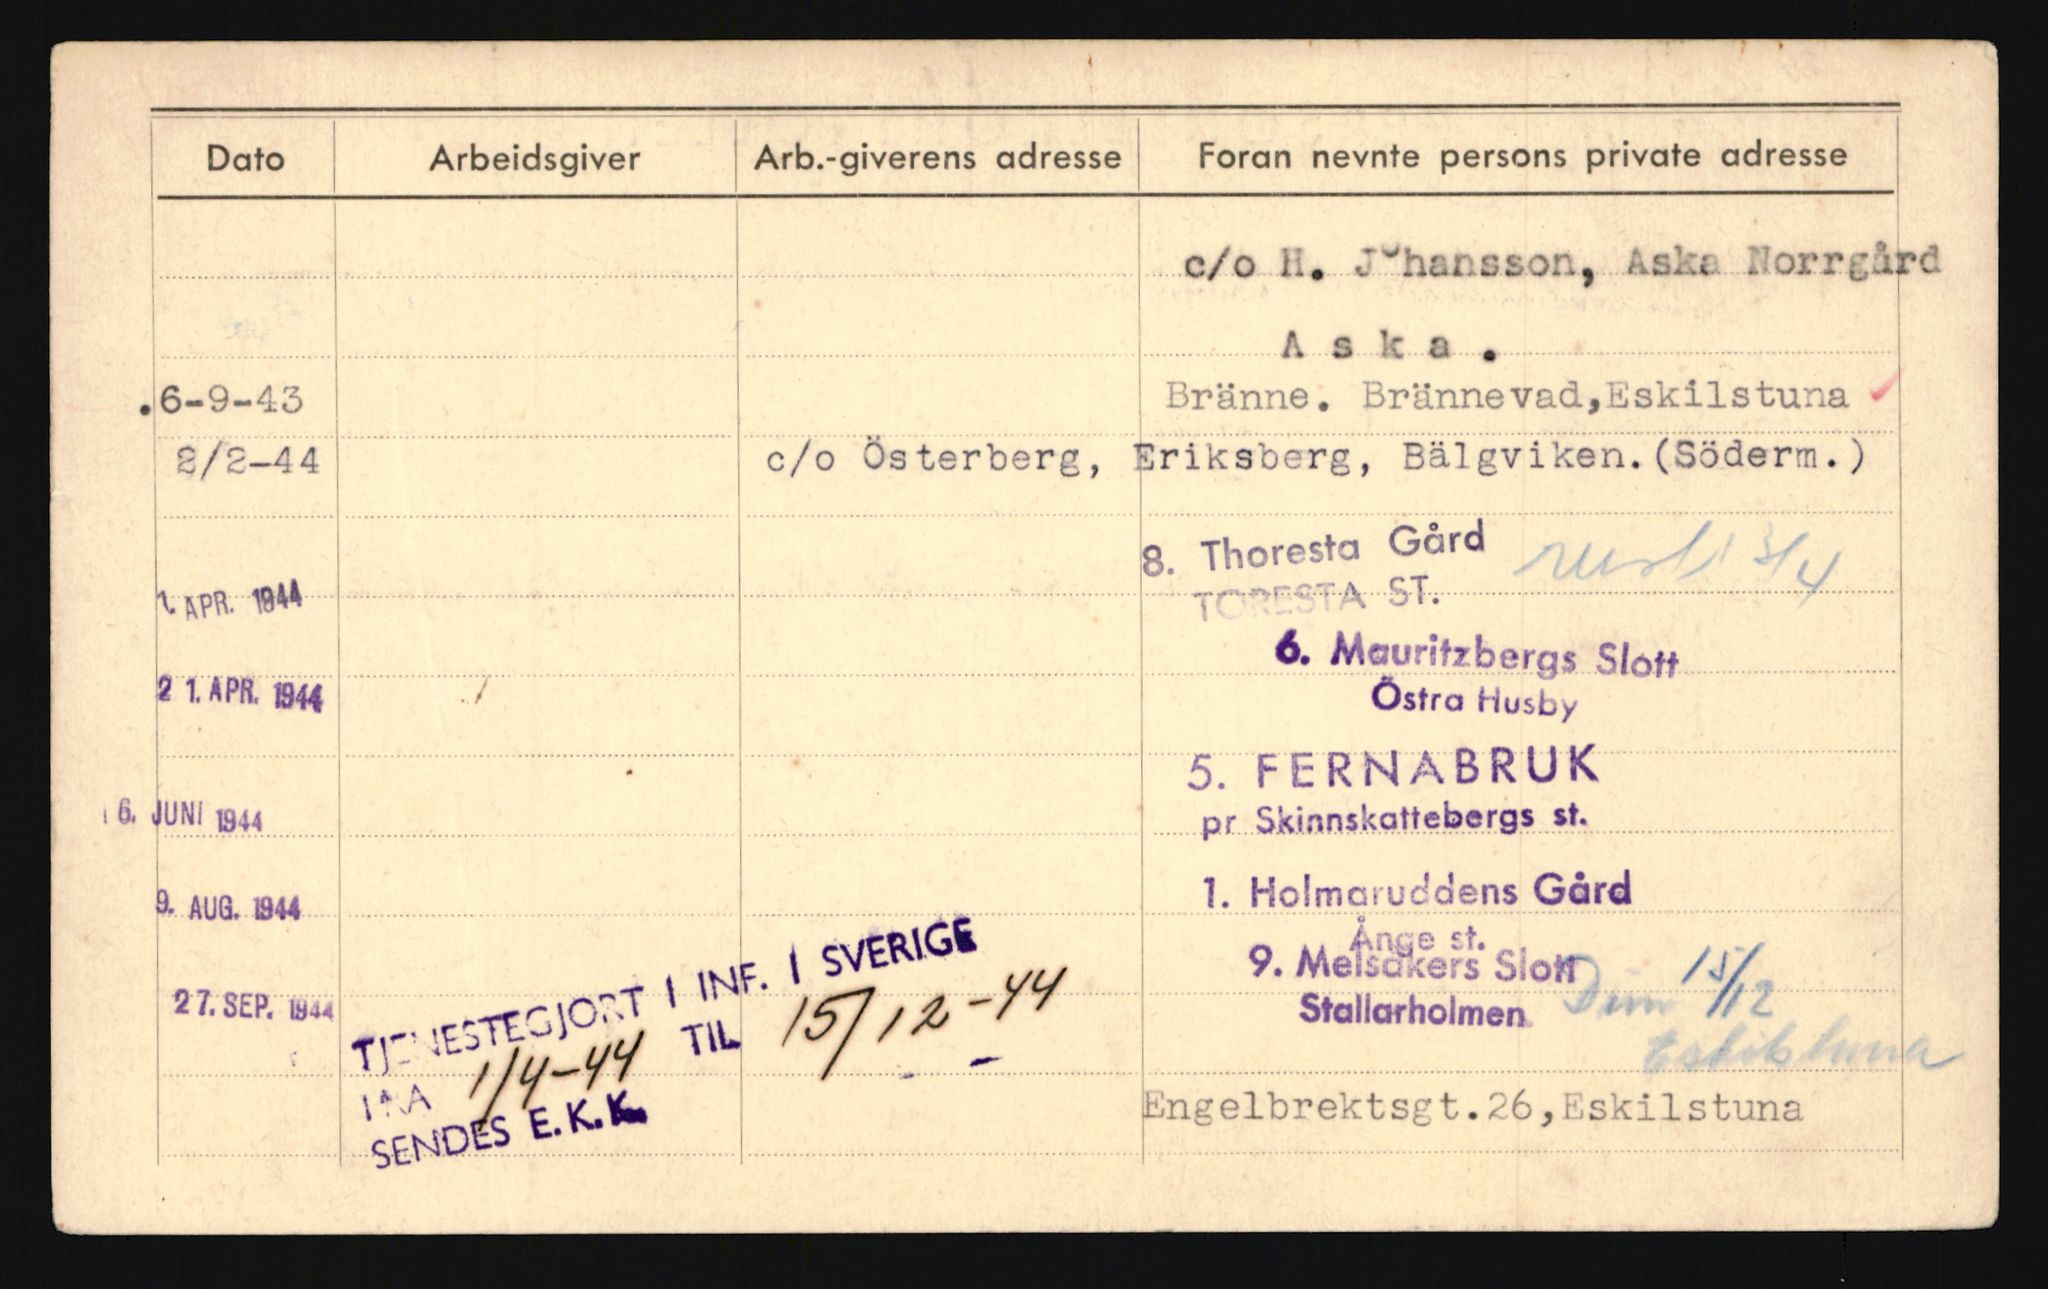 Dato Arbeidsgiver Arb.-giverens adresse Foran nevnte persons private adresse
c/o H. Johansson, Aska Norrgård
Aska.
.6-9-43 Bränne. Brännevad,Eskilstuna
2/2-44 c/o Österberg, Eriksberg, Bälgviken.(Söderm.)
8. Thoresta Gård 3/4
1. APR. 1944 TORESTA ST.
6. Mauritzbergs Slott
21. APR. 1944 Östra Husby
5. FERNABRUK
6. JUNI 1944 pr Skinnskattebergs st.
9. AUG. 1944 1. Holmaruddens Gård
Ånge st.
9. Melsåkers Slott Dim 15/12
27. SEP. 1944 Stallarholmen
Eskilstuna
TJENESTEGJORT I INF. I SVERIGE
FRA 1/4-44 TIL 15/12-44
SENDES E.K.K.
Engelbrektsgt.26,Eskilstuna